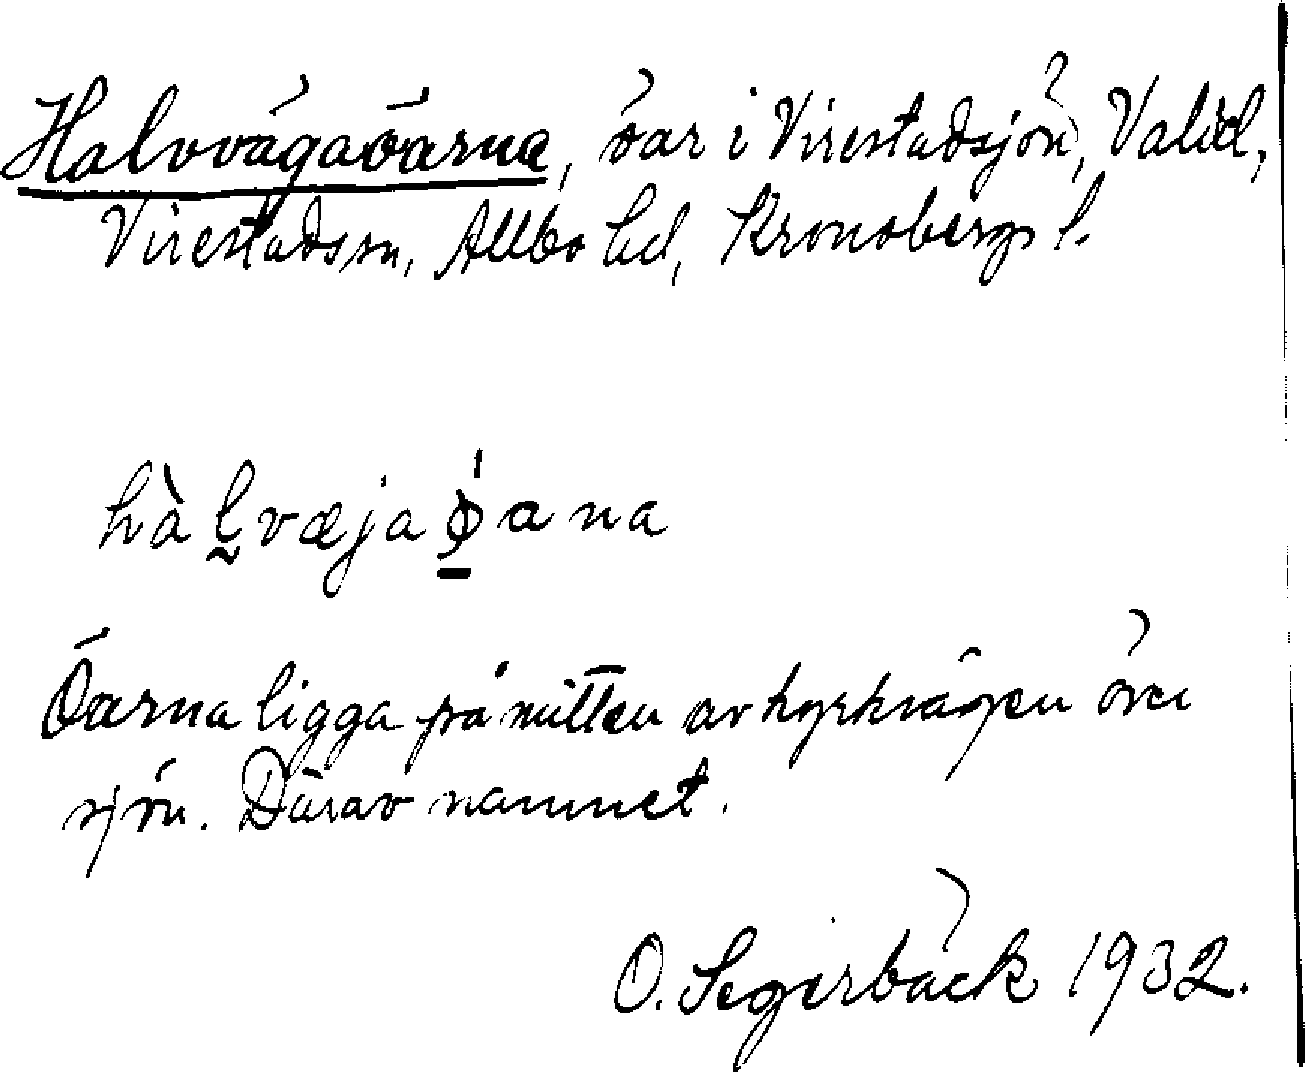 Halvvägaöarna, öar i Virestadsjön,
Virestads sn, Allbo hd, Kronobergs l.
hàlvæja ǿana
Öarna ligga på mitten av kyrkvägen över
sjön. Därav namnet.
O. Segerbäck 1932.